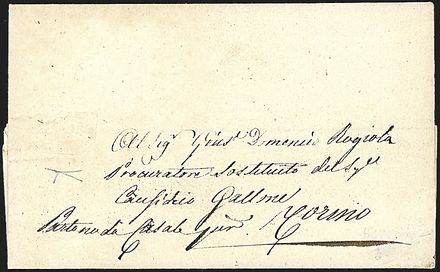 Al Sig.r Gius.e Domenico Rognola
Procuratore Sostituito del Sg.r
Causidico Gallone
Parte no da Casale per Torino